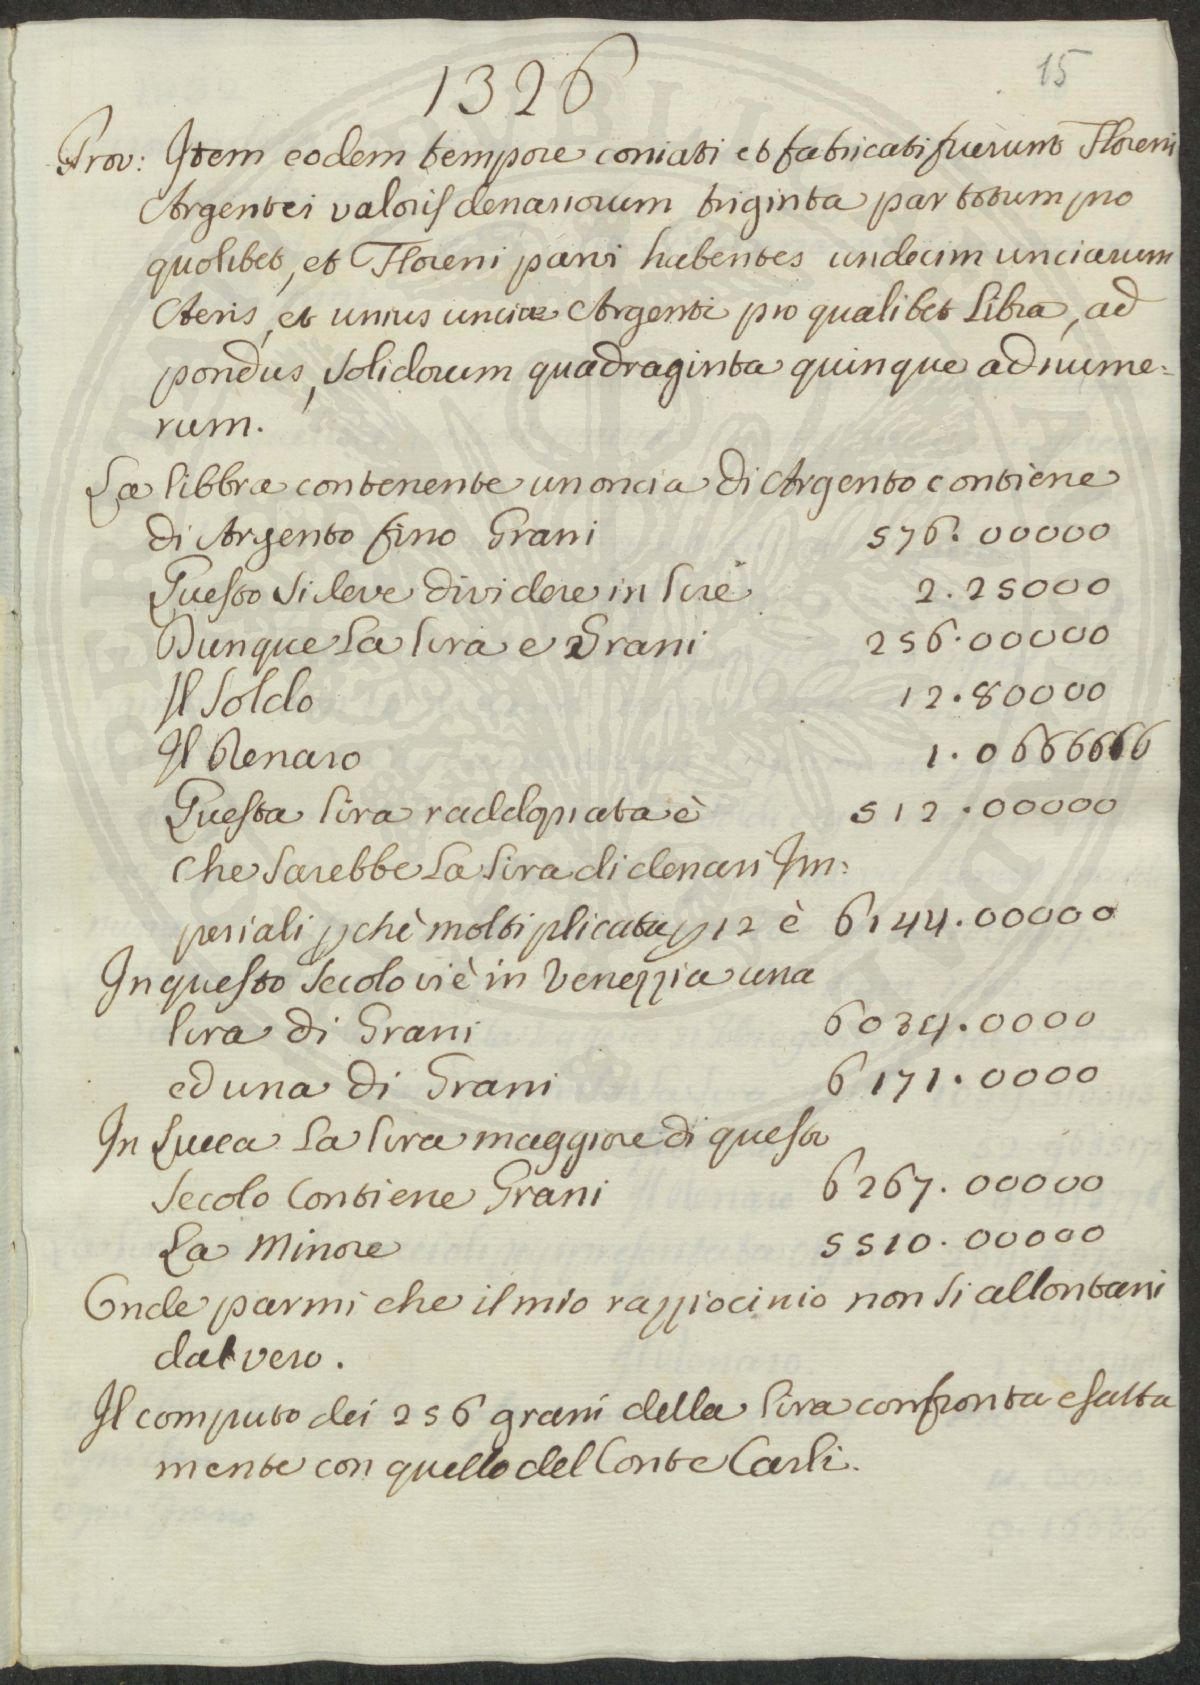 15
1326
Prov: Item eodem tempore coniati et fabricati fuerunt Floreni
Argentei valoris denariorum triginta parvorum pro
quolibet, et Floreni parvi habentes undecim unciarum
Aeris, et unius unciae Argenti pro qualibet Libra, ad
pondus, solidorum quadraginta quinque ad nume=
rum.
La libbra contenente un oncia di Argento contiene
di Argento fino Grani 576.00000
Questo si deve dividere in lire 2.25000
Dunque la lira e Grani 256.00000
Il Soldo 12.80000
Il Denaro 1.0666666
Questa lira raddopiata è 512.00000
che sarebbe la lira di denari Im:
periali pchè moltiplicata p 12 è 6144.00000
In questo secolo vi è in Venezzia una
lira di Grani 6034.0000
ed una di Grani 6171.0000
In Lucca la lira maggiore di questo
secolo contiene Grani 6267.00000
La Minore 5510.00000
Onde parmi che il mio razziocinio non si allontani
dal vero.
Il computo dei 256 grani della lira confronta esatta
mente con quello del Conte Carli.